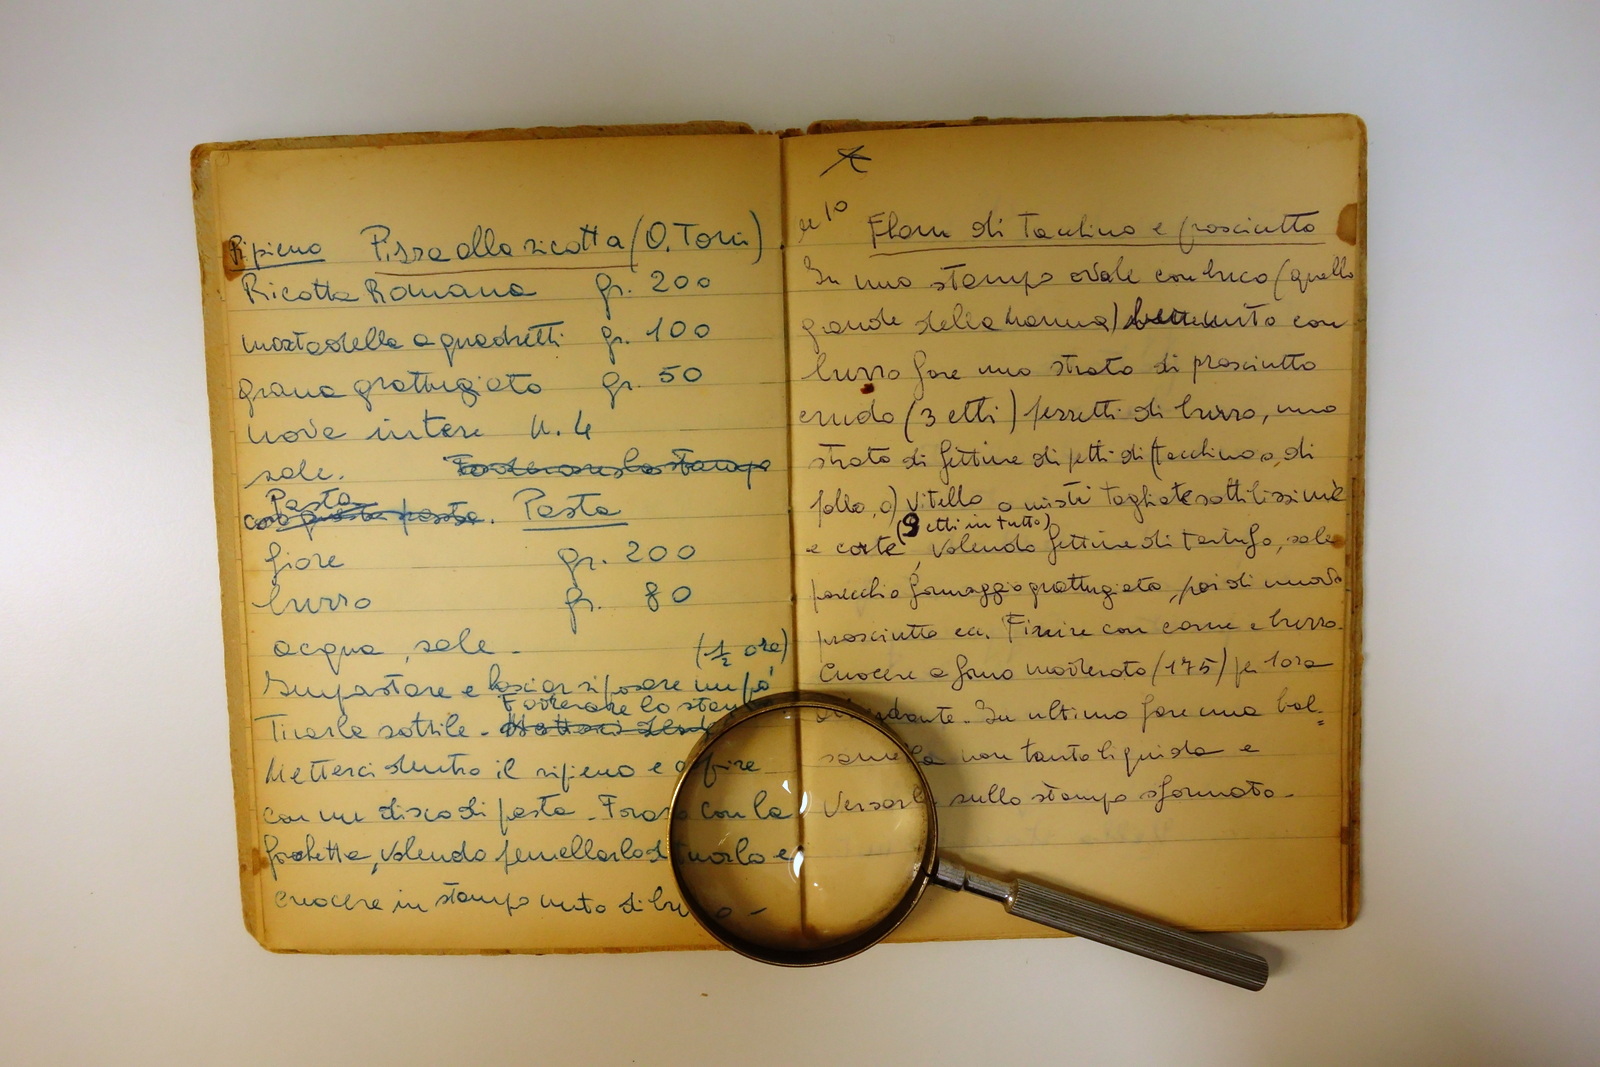 Ripieno Pizza alla ricotta (O. Toni)
Ricotta Romana gr. 200
mortadella a quadretti gr. 100
grana grattugiato gr. 50
uova intere N. 4
sale. Foderare lo stampo
Pasta
con questa pasta. Pasta
fiore gr. 200
burro gr. 80
acqua, sale - (1/2 ora)
Impastare e lasciar riposare un po'
Foderare lo stampo
Tirarla sottile -
Metterci dentro il ripieno e coprire
con un disco di pasta - Forare con la
forchetta, volendo pennellarla di tuorlo e
cuocere in stampo unto di burro -
n° 10 Flam di Tacchino e prosciutto
In uno stampo ovale con buco (quello
grande della nonna) unto con
burro fare uno strato di prosciutto
crudo (3 etti) pezzetti di burro, uno
strato di fettine di petti di (tacchino o, di
pollo, o) vitello o misti tagliate sottilissime
(9 etti in tutto)
e corte, volendo fettine di tartufo, sale
parecchio formaggio grattugiato, poi di nuovo
prosciutto ecc. Finire con carne e burro.
Cuocere a forno moderato (175) per 1 ora
abbondante. In ultimo fare una bal=
samella non tanto liquida e
versarla sullo stampo sformato -